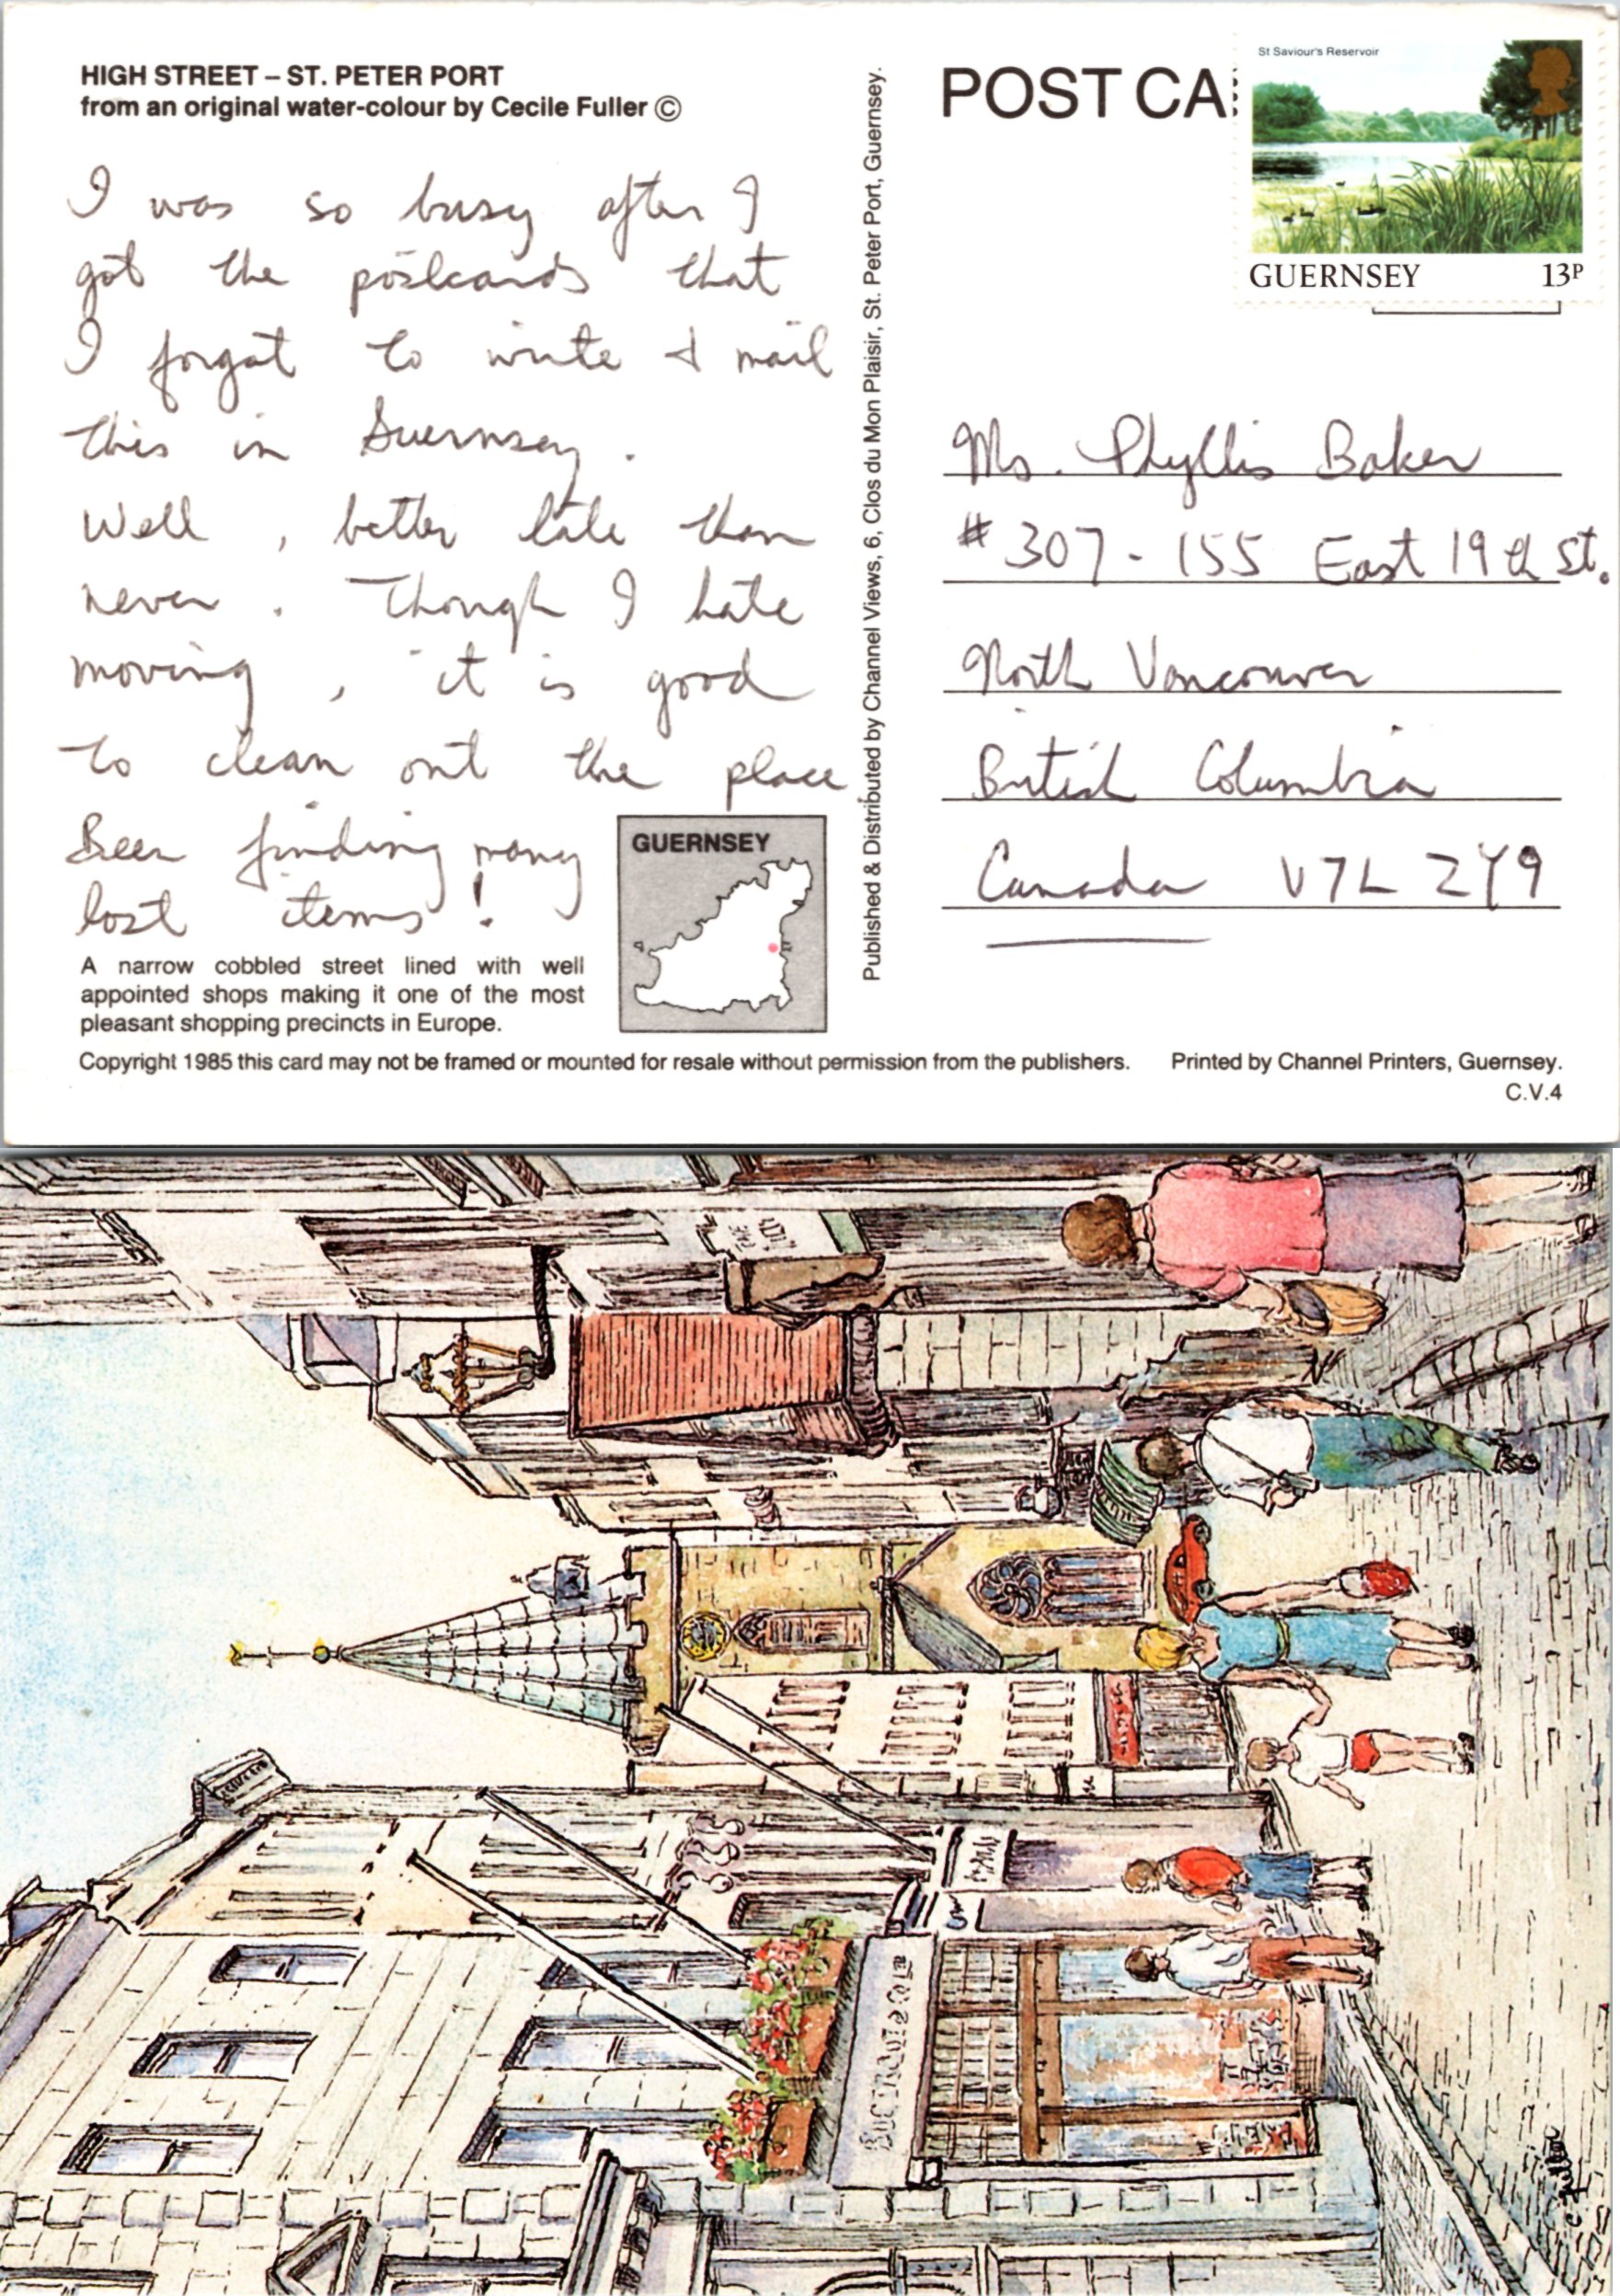 HIGH STREET – ST. PETER PORT
from an original water-colour by Cecile Fuller ©
I was so busy after I
got the postcards that
I forgot to write & mail
this in Guernsey.
Well, better late than
never. Though I hate
moving, it is good
to clean out the place
Been finding many
lost items!
GUERNSEY
A narrow cobbled street lined with well
appointed shops making it one of the most
pleasant shopping precincts in Europe.
Copyright 1985 this card may not be framed or mounted for resale without permission from the publishers.
Printed by Channel Printers, Guernsey.
C.V.4
Published & Distributed by Channel Views, 6, Clos du Mon Plaisir, St. Peter Port, Guernsey.
POST CA
St Saviour's Reservoir
GUERNSEY 13P
Ms. Phyllis Baker
#307-155 East 19th St.
North Vancouver
British Columbia
Canada V7L 2Y9
C Fuller